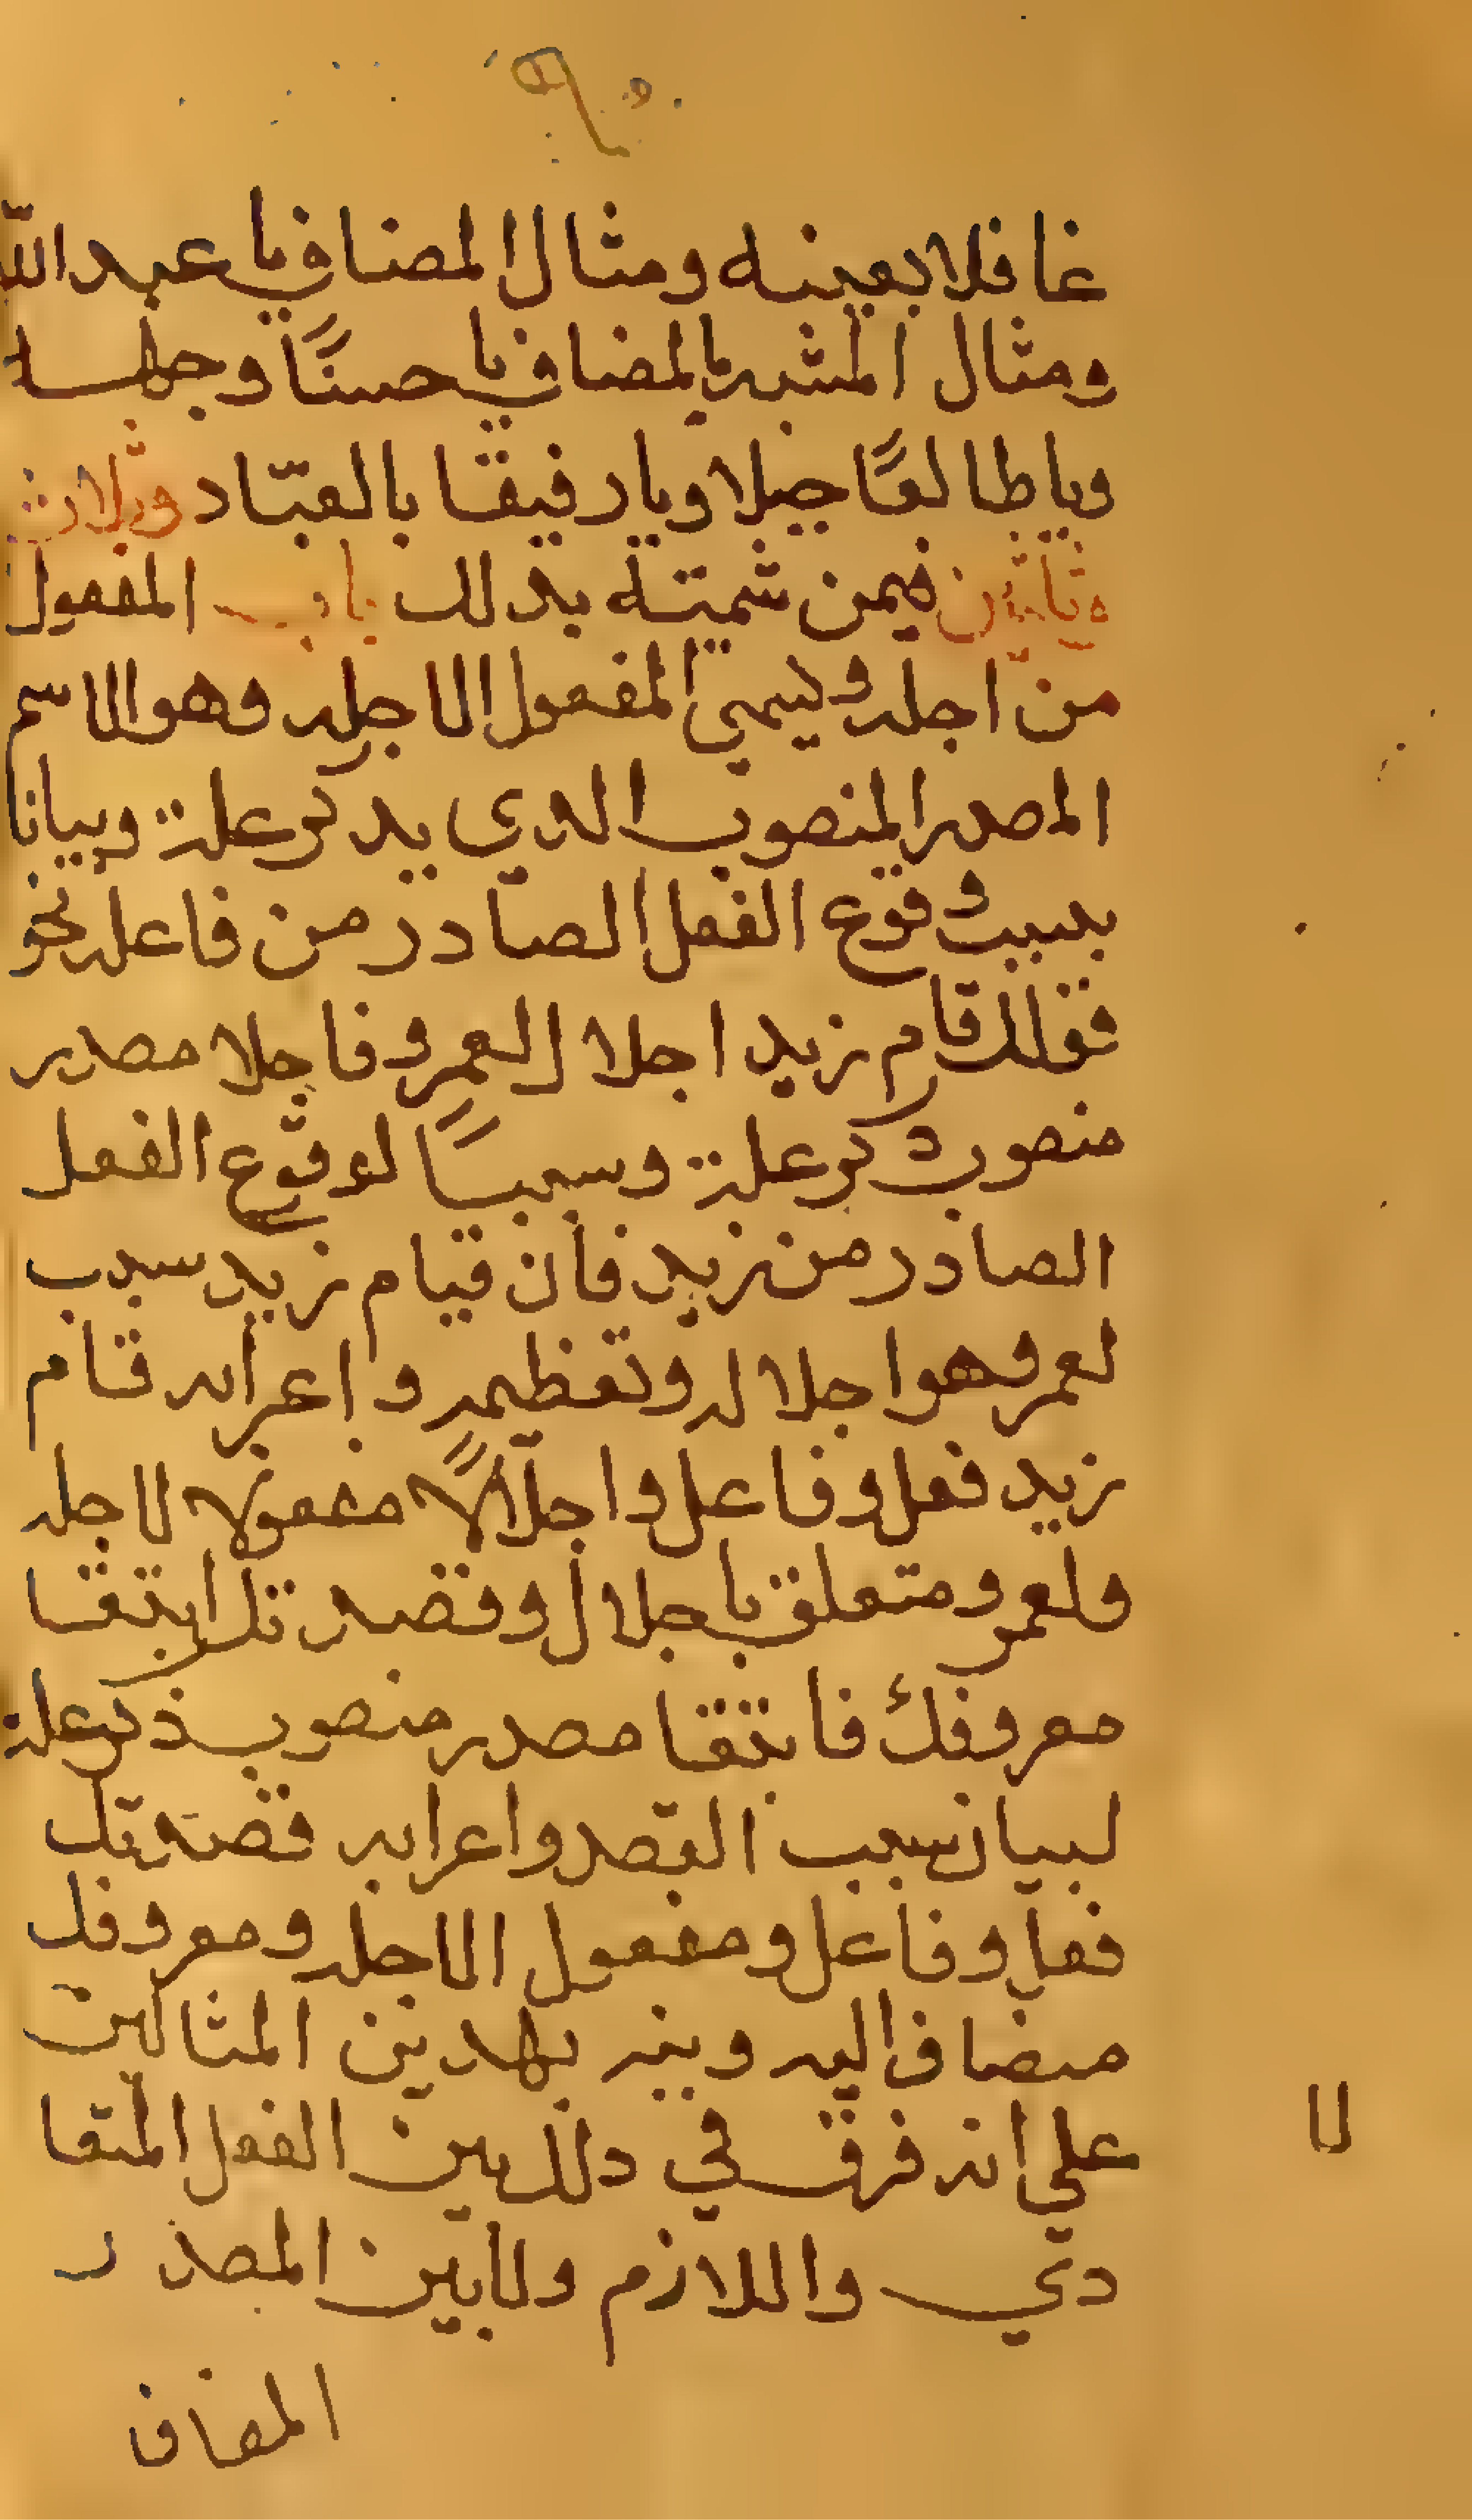 غافلا بعينه ومثال المضاف يا عبد الله
ومثال المشبه بالمضاف يا حسنًا وجهه
ويا طالعًا جبلا ويا رفيقا بالعبّاد وثلاثة
وثلثين فيمن سميته بذلك باب المفعول
من اجله ويسمي المفعول لاجله وهو الاسم
المصدر المنصوب الدي يدكر علة وبيانا
بسبب وقوع الفعل الصادر من فاعله نحو
قولك قام زيد اجلالا لعمرو فاجلا مصدر
منصوب دكر علة وسببًا لوقوع الفعل
الصادر من زيد فان قيام زيد سبب
لعمر وهو اجلاله وتعظيمه واعرابه قام
زيد فعل وفاعل واجلالًا مفعولا لاجله
ولعمرو متعلق باجلال وقصدتك ابتغا
معروفك فابتغا مصدر منصوب ذكر علة
لبيان سبب القصد واعرابه قصدتك
فعل وفاعل ومفعول لاجله ومعروفك
مضاف اليه وبنه بهدين المثالين
علي انه فرق في دلك بين الفعل المتعا
دي واللازم ولا بين المصدر
المضاف
لا